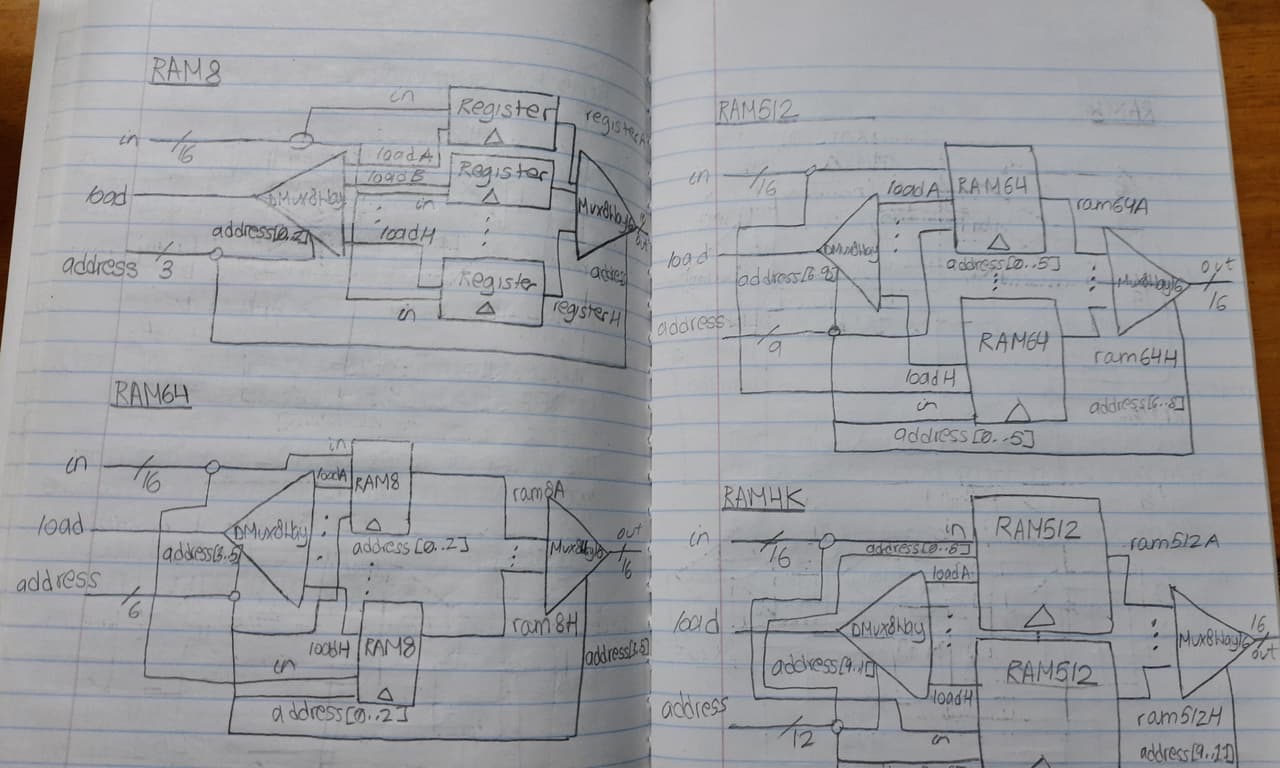 RAM8
in
in
16
Register
registerA
loadA
loadB
Register
load
DMux8Way
in
Mux8Way16
address[0..2]
loadH
address
3
Register
in
registerH
RAM64
in
in
16
loadA
RAM8
ram8A
load
DMux8Way
out
16
address[3..5]
address[0..2]
Mux8Way16
address
6
loadH
RAM8
ram8H
in
address[3..5]
address[0..2]
RAM512
in
16
loadA
RAM64
ram64A
load
DMux8Way
address[0..5]
out
16
Mux8Way16
address
9
RAM64
ram64H
loadH
in
address[6..8]
address[0..5]
RAM4K
in
16
in
RAM512
ram512A
loadA
load
DMux8Way
16
out
Mux8Way16
RAM512
loadH
address
12
in
ram512H
address[9..11]